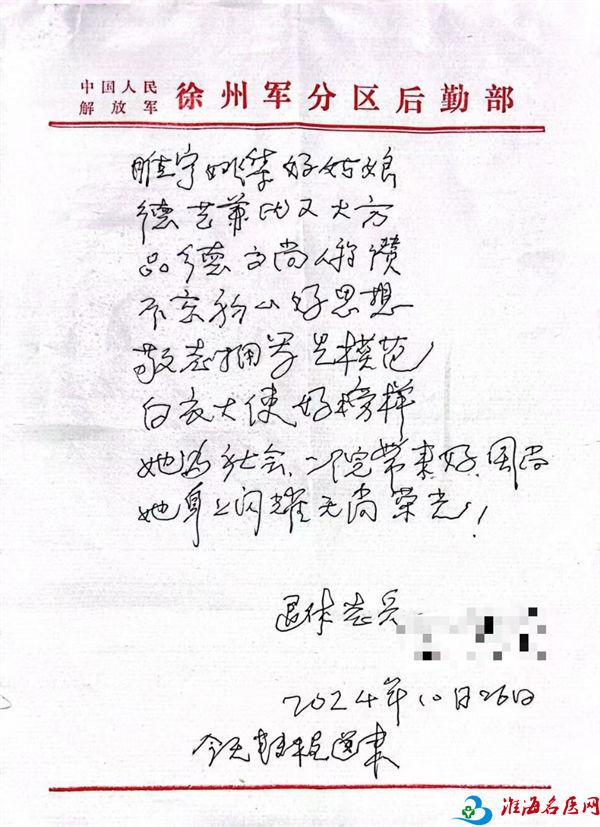 中国人民
解放军 徐州军分区后勤部
睢宁姚 好姑娘
德艺兼 又大方
品德高尚人称赞
不 私心好思想
敬老拥军是模范
白衣天使好榜样
她为社会、 院带来好风尚
她身上闪耀无尚荣光!
退休老兵
2024年10月26日
今天 送来
淮海名医网